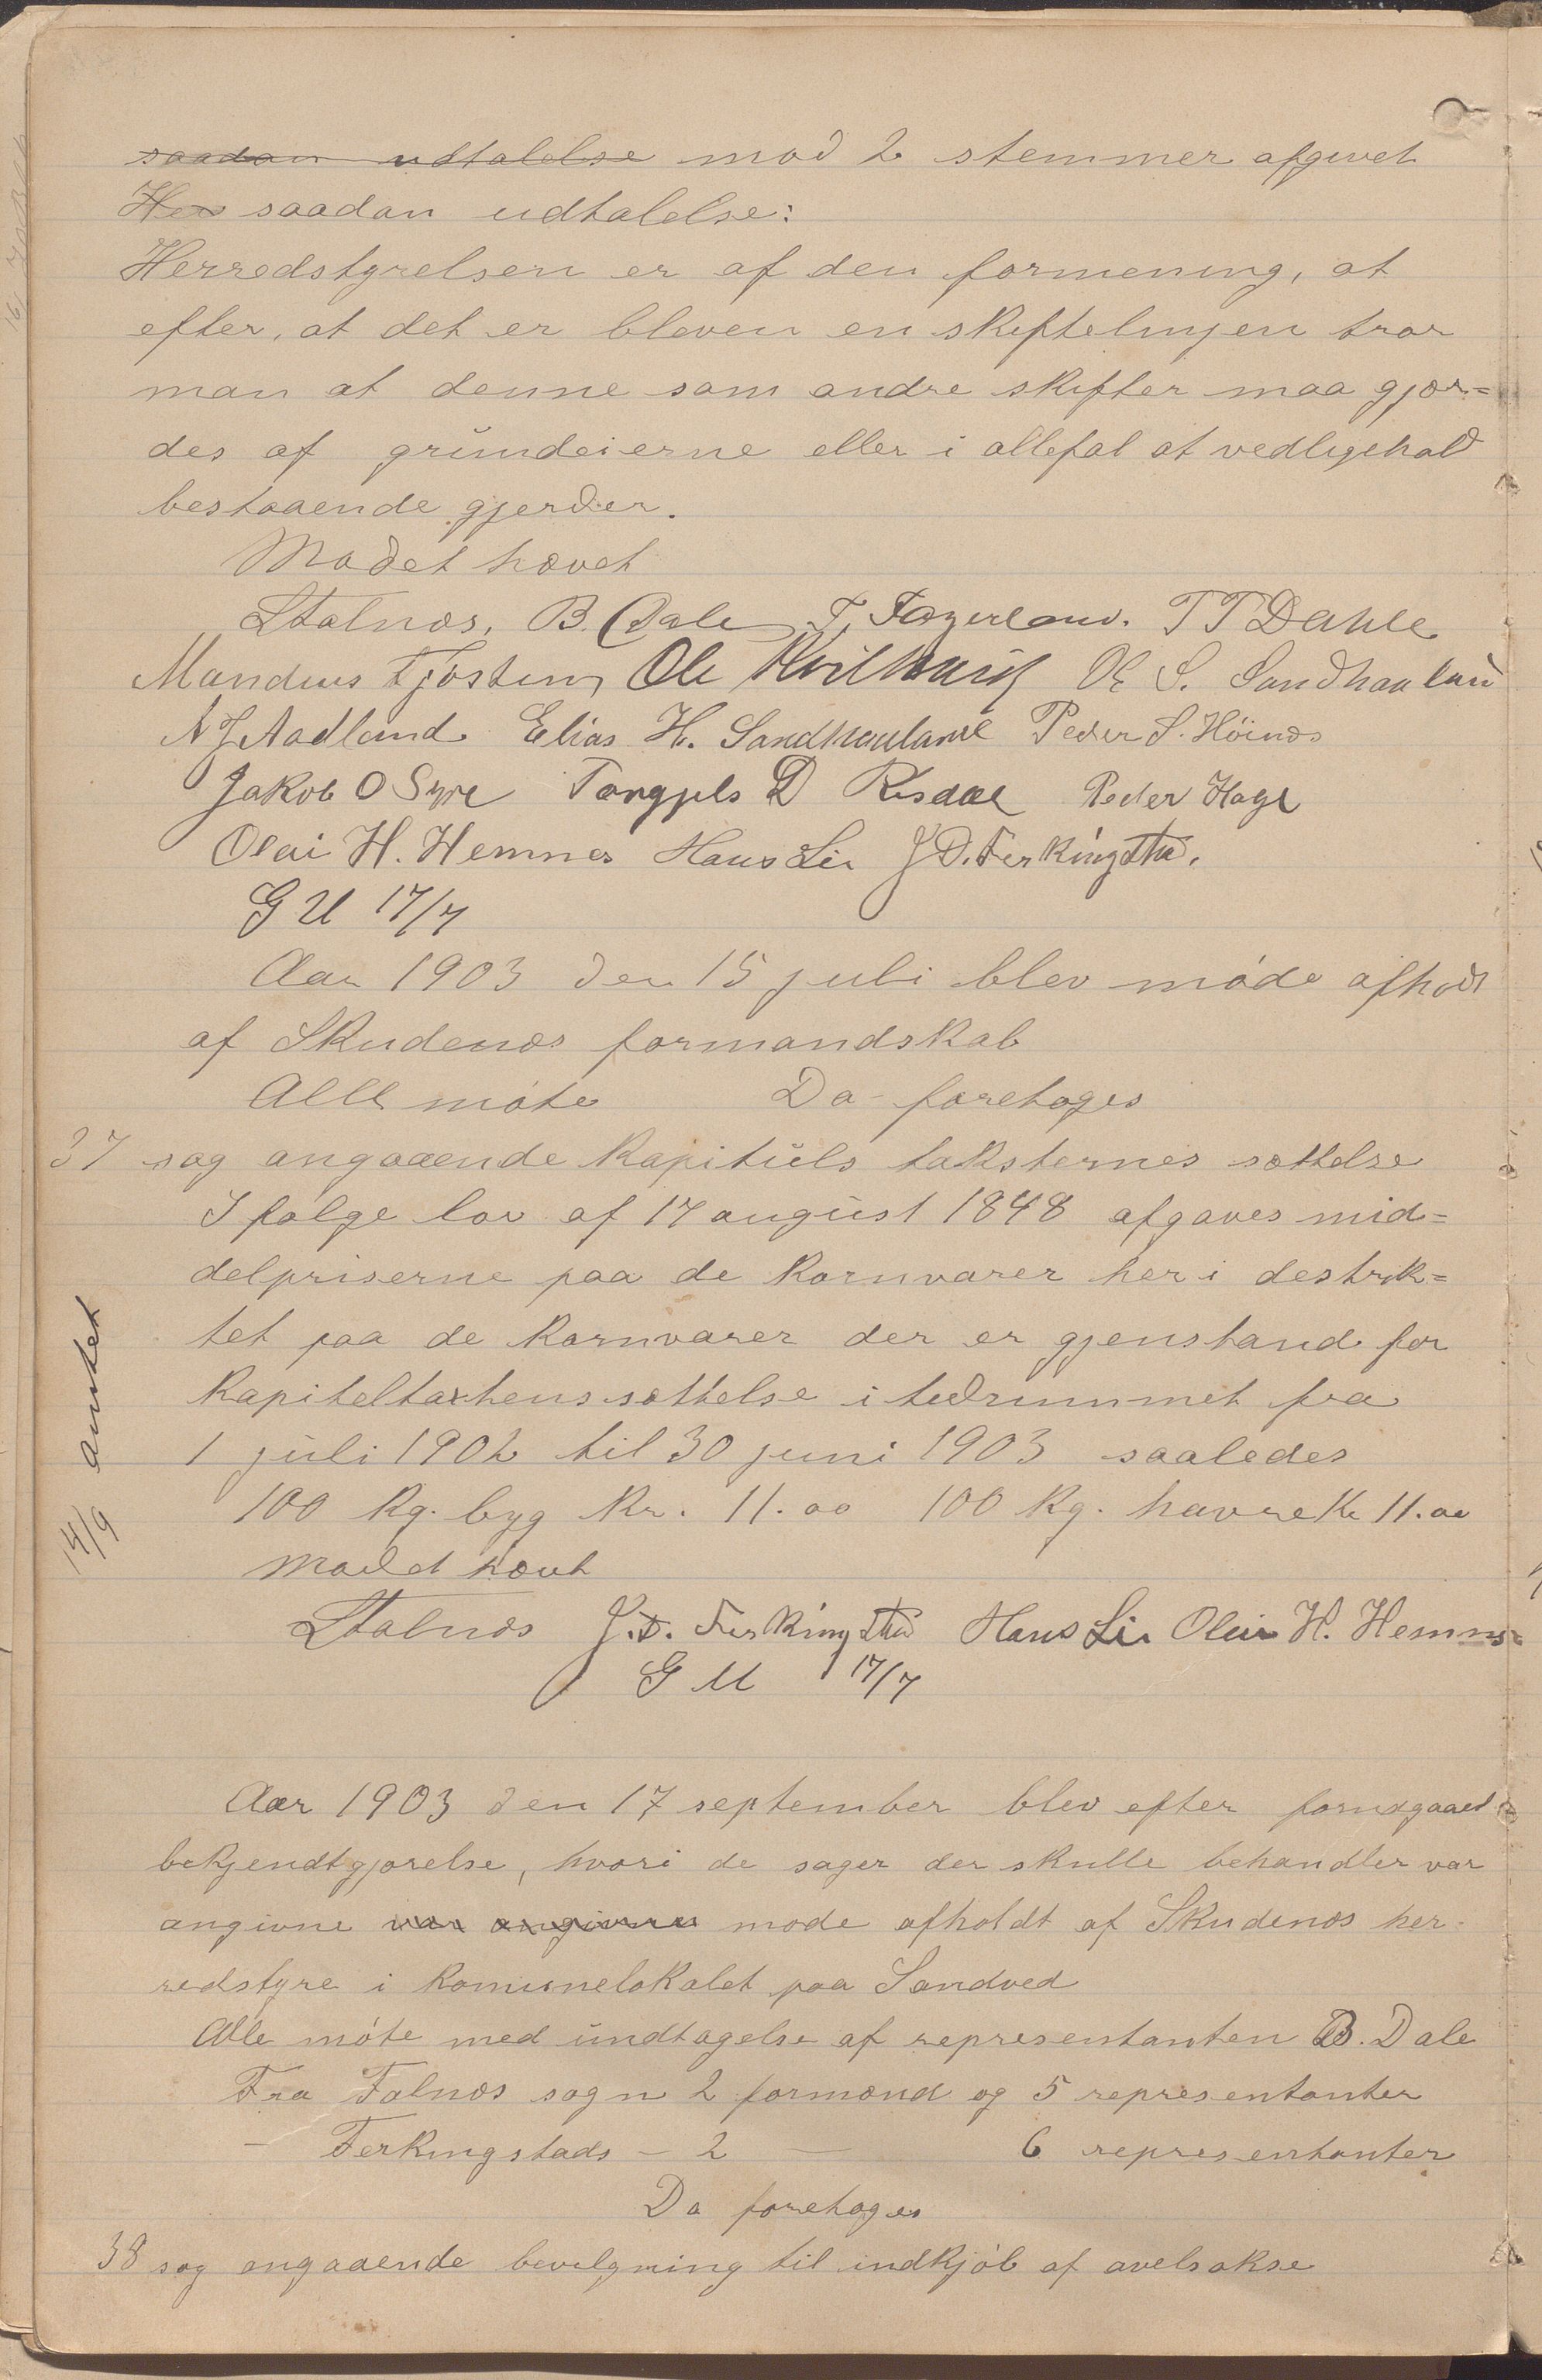 saadan udtalelse mod 2 stemmer afgivet
Her saadan udtalelse:
Herredstyrelsen er af den formening, at
efter, at det er bleven en skiftelinjen tror
man at denne som andre skifter maa gjær=
des af grundeierne eller i allefal at vedligehold
bestaaende gjerder.
Mødet hævet
Stalnæs, B. Dale T. Fagerland. T T Dahle
Mandius Tjøsteim Ole Kvilhaug O S. Sandhaaland
A J Aadland Elias H. Sandhaaland Peder S. Høinæs
Jakob O Syre Torgjels D Risdal Peder Hage
Olai H. Hemnes Hans Lie J D. Ferkingstad.
G U 17/7
Aar 1903 den 15 juli blev møde afholt
af Skudenæs formandskab
Alle møte Da foretoges
37 sag angaaende Kapituls taksternes sættelse
I følge lov af 17 august 1848 afgaves mid=
delpriserne paa de Kornvarer her i destrik=
tet paa de Kornvarer der er gjenstand for
Kapiteltaxtens sættelse i tidrummet fra
1 juli 1902 til 30 juni 1903 saaledes
100 Kg. byg Kr. 11.00 100 Kg. havre Kr 11.00
Mødet hævt
14/9 amtet
Stalnæs J. D. Ferkingstad Hans Lie Olai H. Hemnes
G U 17/7
Aar 1903 den 17 september blev efter forudgaaet
bekjendtgjørelse, hvori de sager der skulle behandler var
angivne var angivne møde afholdt af Skudenæs her-
redstyre i Komunelokalet paa Sandved
Alle møte med undtagelse af representanten B. Dale
Fra Falnæs sogn 2 formænd og 5 representanter
— Ferkingstads — 2 — 6 representanter
Da foretoges
38 sag angaaende bevilgning til indkjøb af avelsokse